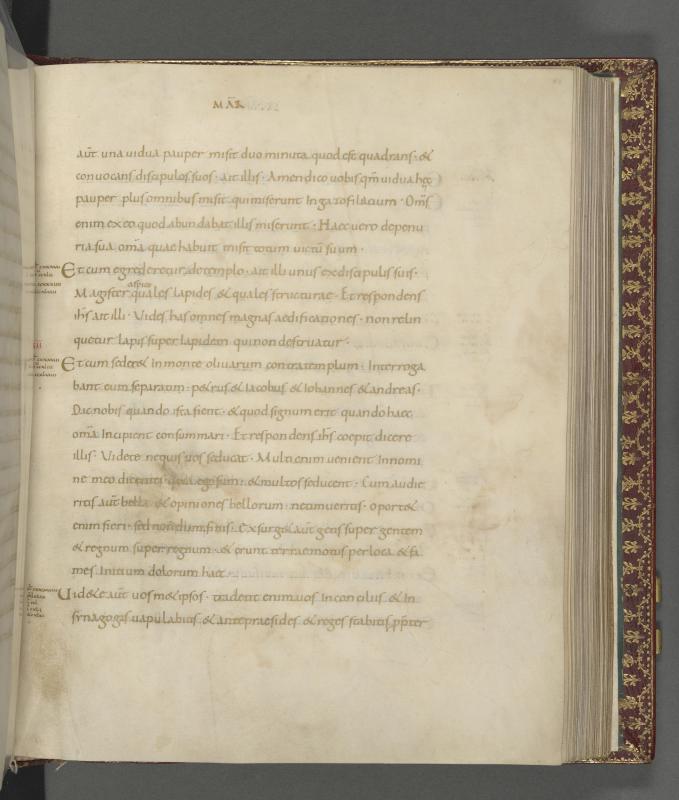 MAR̄
aut̄ una uidua pauper misit duo minuta quod est quadrans · &
conuocans discipulos suos · ait illis · Amen dico uobis qm̄ uidua hęc
pauper plus omnibus misit qui miserunt In gazofilacium · Oms̄
enim ex eo quod abundabat illis miserunt · Haec uero de penu
ria sua oma̅ quae habuit misit totum uictū suum ·
Et cum egrederetur de templo · ait illi unus ex discipulis suis ·
aspice
Magister quales lapides & quales structurae · Et respondens
ihs̄ ait illi · Vides has omnes magnas aedificationes · non relin
quetur lapis super lapidem qui non destruatur ·
Et cum seder& In monte oliuarum contra templum · Interroga
bant eum separatim · p&rus & Iacobus & Iohannes & andreas ·
Dic nobis quando ista fient · & quod signum erit quando haec
oma̅ Incipient consummari · Et respondens ihs̄ coepit dicere
illis · Videte nequis uos seducat · Multi enim uenient In nomi
ne meo dicentes quia ego sum · & multos seducent · Cum audie
ritis aut̄ bella & opiniones bellorum · ne timueritis · oport&
enim fieri · sed nondum finis · Exsurg& aut̄ gens super gentem
& regnum super regnum · & erunt terrae motus per loca & fa
mes · Initium dolorum haec
Uid&e aut̄ uosm&ipsos · tradent enim uos In conciliis & In
synagogis uapulabitis · & ante praesides & reges stabitis pp̄ter